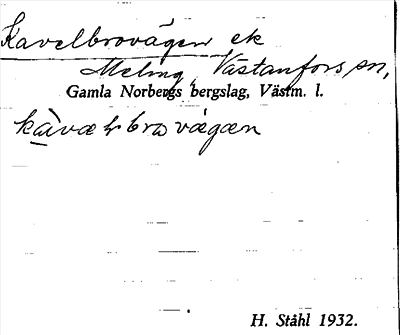 Kavelbrovägen ek
Meling, Västanfors sn,
Gamla Norbergs bergslag, Västm. l.
kàvæłbrovägæn
H. Ståhl 1932.